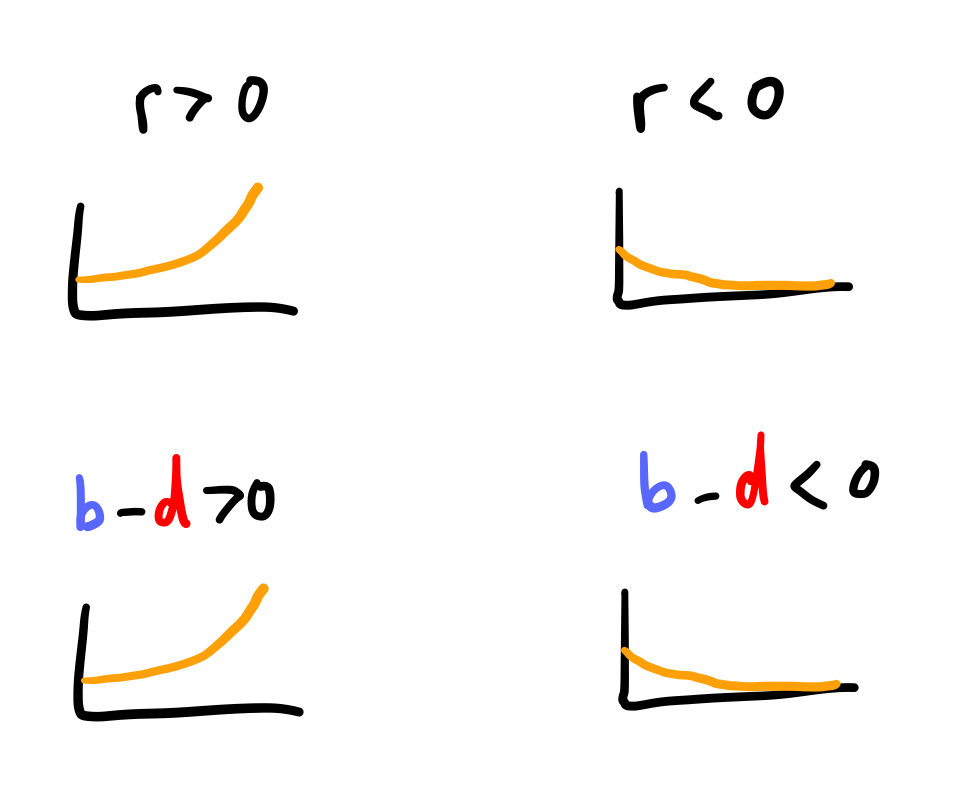 r > 0
r < 0
b - d > 0
b - d < 0